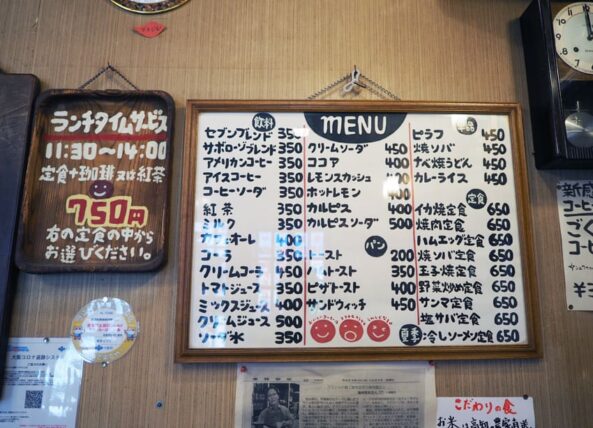 ランチタイムサービス
11:30〜14:00
定食+珈琲又は紅茶
750円
右の定食の中から
お選びください。
MENU
飲料
セブンブレンド 350
サボローゾブレンド 350
アメリカンコーヒー 350
アイスコーヒー 350
コーヒーソーダ 350
紅茶 350
ミルク 350
カフェオーレ 400
コーラ 350
クリームコーラ 450
トマトジュース 350
ミックスジュース 400
クリームジュース 500
ソーダ水 350
クリームソーダ 450
ココア 400
レモンスカッシュ 400
ホットレモン 400
カルピス 400
カルピスソーダ 500
パン
トースト 200
ハムトースト 350
ピザトースト 400
サンドウィッチ 450
ピラフ 450
焼ソバ 450
ナベ焼うどん 450
カレーライス 450
定食
イカ焼定食 650
焼肉定食 650
ハムエッグ定食 650
焼ソバ定食 650
玉子焼定食 650
野菜炒め定食 650
サンマ定食 650
塩サバ定食 650
夏季 冷しソーメン定食 650
大阪コロナ追跡システム
こだわりの食
お米は高知